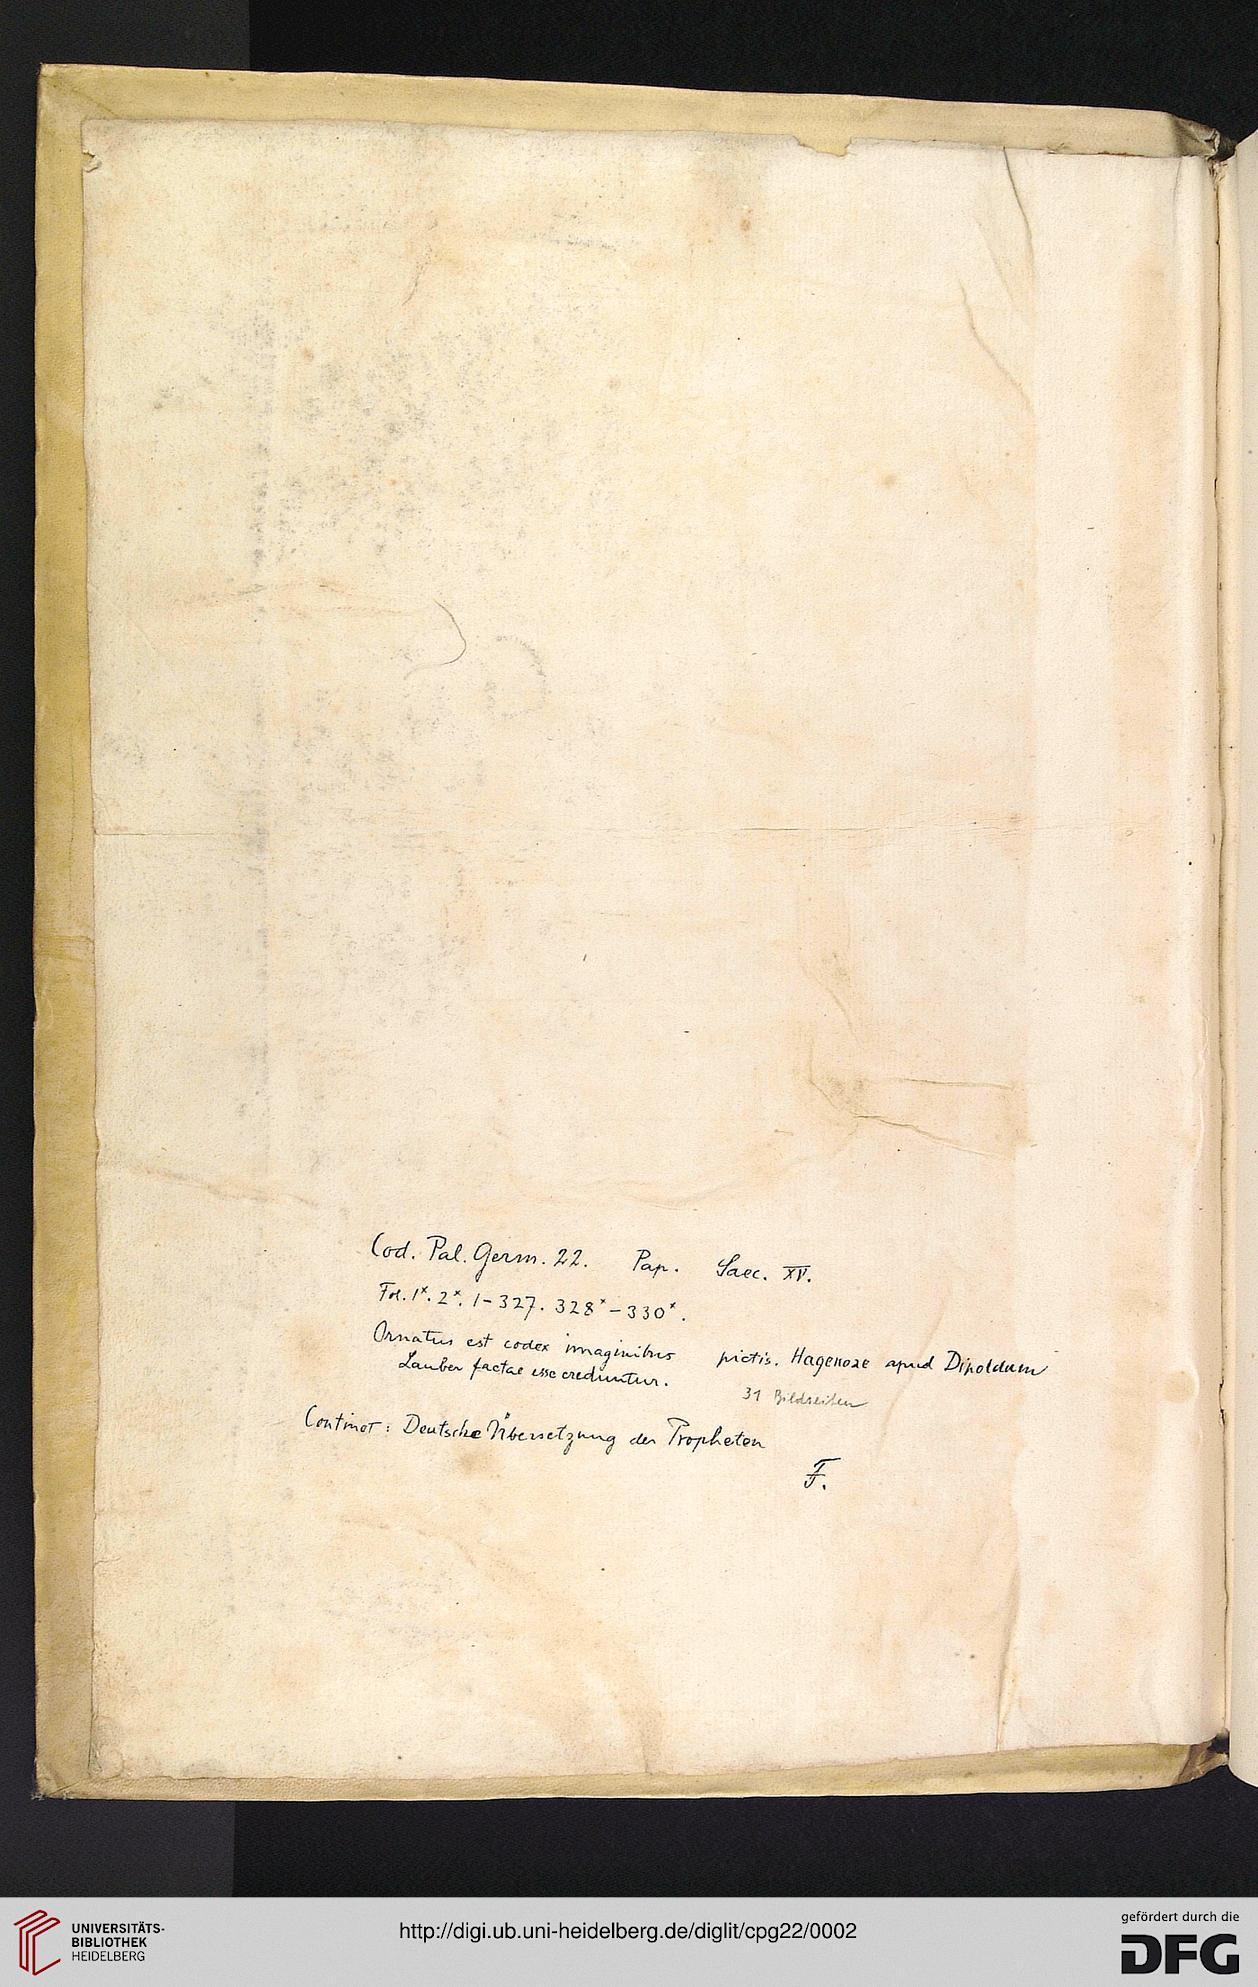 Cod. Pal. Germ. 22. Pap. Saec. XV.
Fol. 1*. 2*. 1-327. 328*-330*.
Ornatus est codex imaginibus pictis. Hagenoae apud Dipoldum
Lauber factae esse creduntur.
31 Bildseiten
Continet: Deutsche Übersetzung der Propheten
F.
UNIVERSITÄTS-
BIBLIOTHEK
HEIDELBERG
http://digi.ub.uni-heidelberg.de/diglit/cpg22/0002
gefördert durch die
DFG